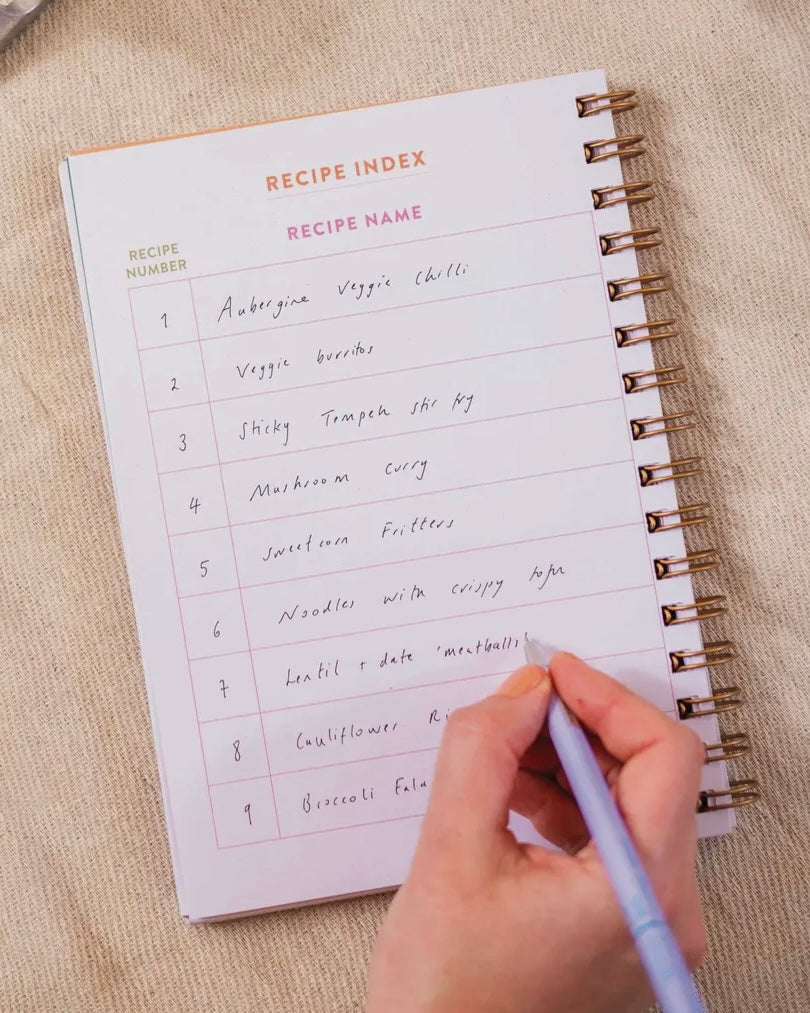 RECIPE INDEX
RECIPE NUMBER
RECIPE NAME
1 Aubergine Veggie Chilli
2 Veggie burritos
3 Sticky Tempeh stir fry
4 Mushroom curry
5 sweetcorn Fritters
6 Noodles with crispy tofu
7 Lentil + date 'meatballs'
8 Cauliflower
9 Broccoli